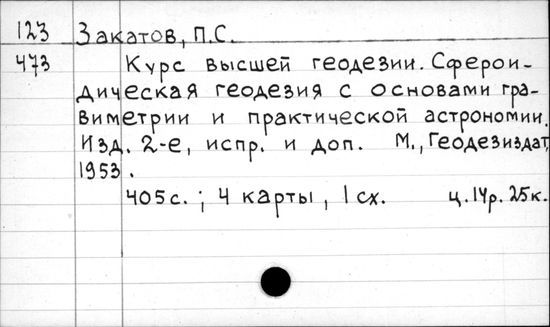 123 Закатов, П.С.
473 Курс высшей геодезии. Сферои-
дическая геодезия с основами гра-
виметрии и практической астрономии.
Изд. 2-е, испр. и доп. М., Геодезиздат,
1953.
405с.; 4 карты, 1 сх. ц. 14р. 25к.